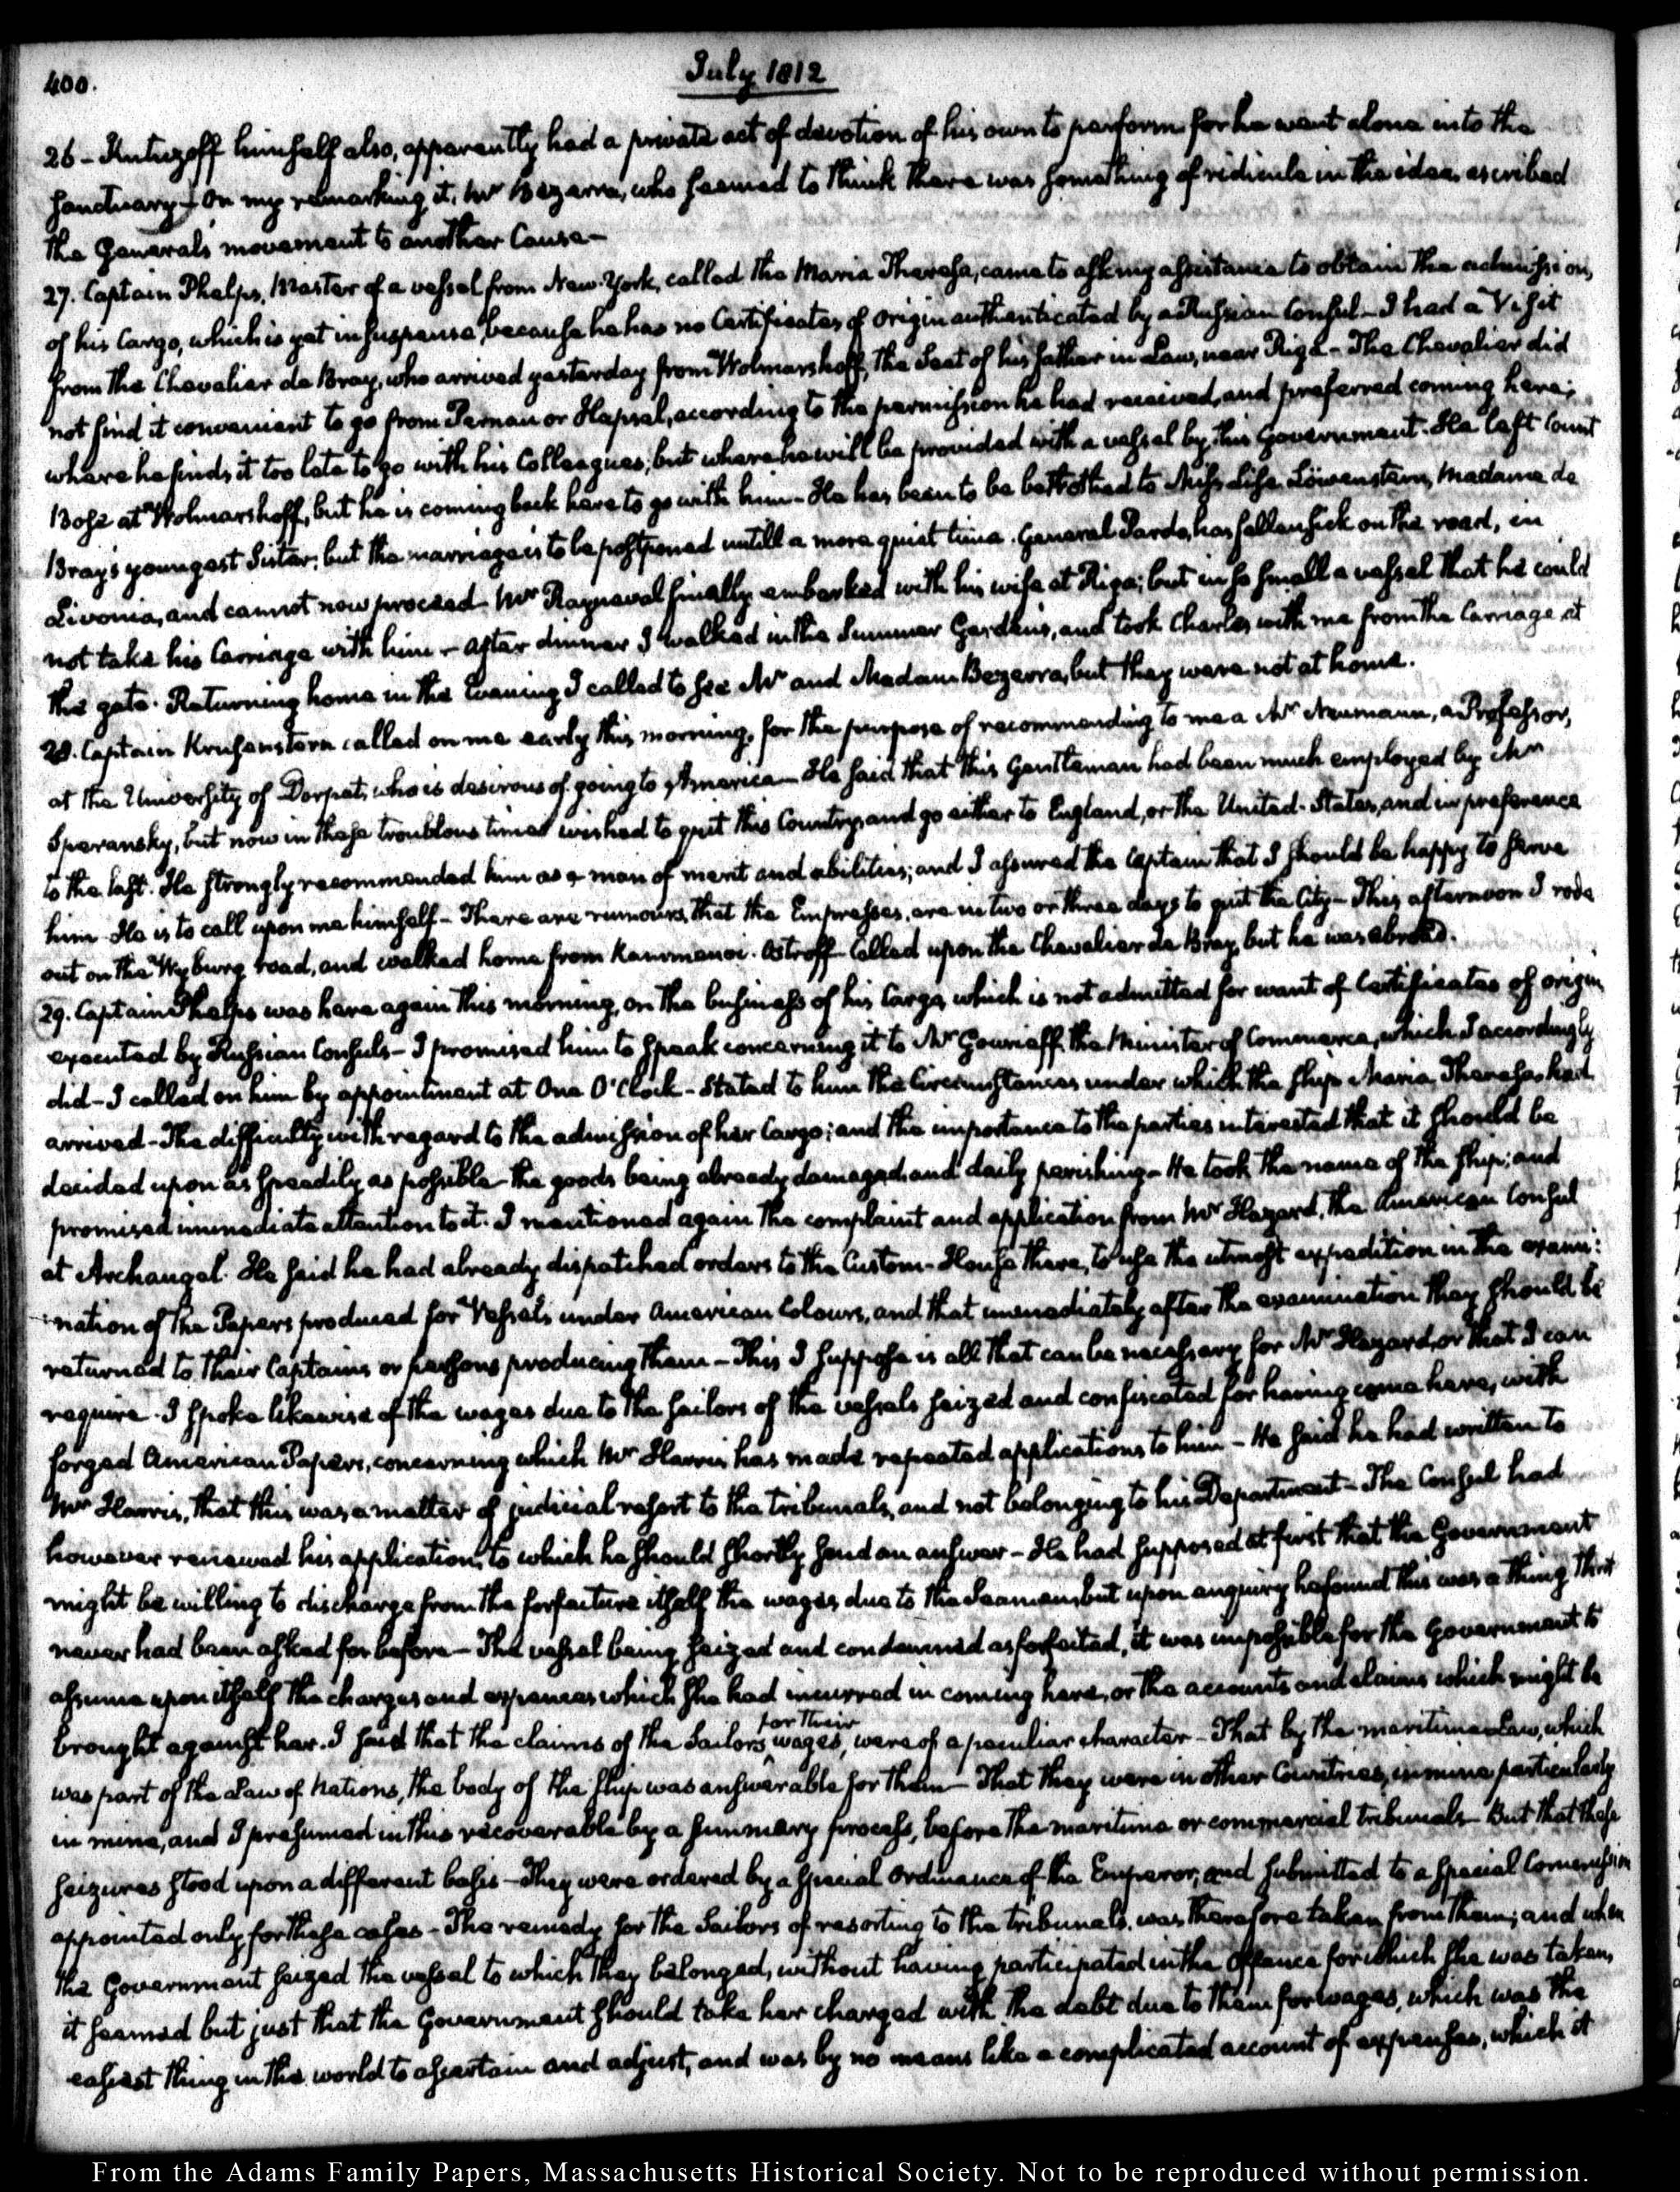 400.
July 1812
26 - Kutuzoff himself also, apparently had a private act of devotion of his own to perform for he went alone into the
Sanctuary - On my remarking it, Mr Bezerra, who seemed to think there was something of ridicule in the idea, ascribed
the General's movement to another Cause -
27. Captain Phelps, Master of a vessel from New-York, called the Maria Theresa, came to ask my assistance to obtain the admission,
of his Cargo, which is yet in suspense, because he has no Certificates of origin authenticated by a Russian Consul - I had a Visit
from the Chevalier de Bray, who arrived yesterday from Wolmarshoff, the Seat of his father in Law, near Riga - The Chevalier did
not find it convenient to go from Pernau or Hapsal, according to the permission he had received, and preferred coming here;
where he finds it too late to go with his Colleagues; but where he will be provided with a vessel by this Government. He left Count
Bose at Wolmarshoff, but he is coming back here to go with him - He has been to be betrothed to Miss Lise Löwenstern, Madame de
Bray's youngest Sister; but the marriage is to be postponed untill a more quiet time. General Pardo, has fallen sick on the road, in
Livonia, and cannot now proceed - Mr Rayneval finally embarked with his wife at Riga; but in so small a vessel that he could
not take his Carriage with him - After dinner I walked in the Summer Gardens, and took Charles with me from the Carriage at
the gate. Returning home in the Evening I called to see Mr and Madam Bezerra, but they were not at home.
28. Captain Krusenstern called on me early this morning, for the purpose of recommending to me a Mr Neumann, a Professor,
at the University of Dorpat, who is desirous of going to America - He said that this Gentleman had been much employed by Mr
Speransky, but now in these troublous times wished to quit this Country, and go either to England, or the United-States, and in preference
to the last. He strongly recommended him as a man of merit and abilities; and I assured the Captain that I should be happy to serve
him - He is to call upon me himself - There are rumours, that the Empresses, are in two or three days to quit the City - This afternoon I rode
out on the Wyburg road, and walked home from Kammenoi-Ostroff - Called upon the Chevalier de Bray, but he was abroad.
29. Captain Phelps was here again this morning, on the business of his Cargo, which is not admitted for want of Certificates of origin
executed by Russian Consuls - I promised him to speak concerning it to Mr Gourieff, the Minister of Commerce, which I accordingly
did - I called on him by appointment at One O'Clock - Stated to him the Circumstances under which the ship Maria Theresa, had
arrived - The difficulty with regard to the admission of her Cargo; and the importance to the parties interested that it should be
decided upon as speedily as possible - the goods being already damaged, and daily perishing - He took the name of the ship; and
promised immediate attention to it. I mentioned again the complaint and application from Mr Hazard, the American Consul
at Archangel. He said he had already dispatched orders to the Custom-House there, to use the utmost expedition in the exami:
nation of the Papers produced for Vessels under American Colours, and that immediately after the examination they should be
returned to their Captains or persons producing them - This I suppose is all that can be necessary for Mr Hazard, or that I can
require. I spoke likewise of the wages due to the sailors of the vessels seized and confiscated for having come here, with
forged American Papers, concerning which Mr Harris has made repeated applications to him - He said he had written to
Mr Harris, that this was a matter of judicial resort to the tribunals, and not belonging to his Department - The Consul had
however renewed his application, to which he should shortly send an answer - He had supposed at first that the Government
might be willing to discharge from the forfeiture itself the wages due to the Seamen, but upon enquiry he found this was a thing that
never had been asked for before - The vessel being seized and condemned as forfeited, it was impossible for the Government to
assume upon itself the charges and expences which she had incurred in coming here, or the accounts and claims which might be
brought against her. I said that the claims of the Sailors for their wages, were of a peculiar character - That by the maritime Law, which
was part of the Law of Nations, the body of the ship was answerable for them - That they were in other Countries, in mine particularly
in mine, and I presumed in this recoverable by a summary process, before the maritime or commercial tribunals - But that these
seizures stood upon a different basis - They were ordered by a special ordinance of the Emperor, and submitted to a special Commission
appointed only for these cases - The remedy for the Sailors of resorting to the tribunals, was therefore taken from them; and when
the Government seized the vessel to which they belonged, without having participated in the offence for which she was taken,
it seemed but just that the Government should take her charged with the debt due to them for wages, which was the
easiest thing in the world to ascertain and adjust, and was by no means like a complicated account of expenses, which it
From the Adams Family Papers, Massachusetts Historical Society. Not to be reproduced without permission.